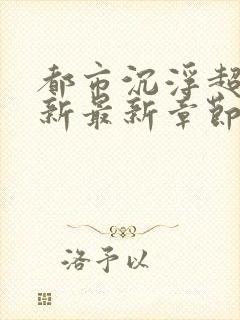 都市沉浮超
新最新章节
洛予以